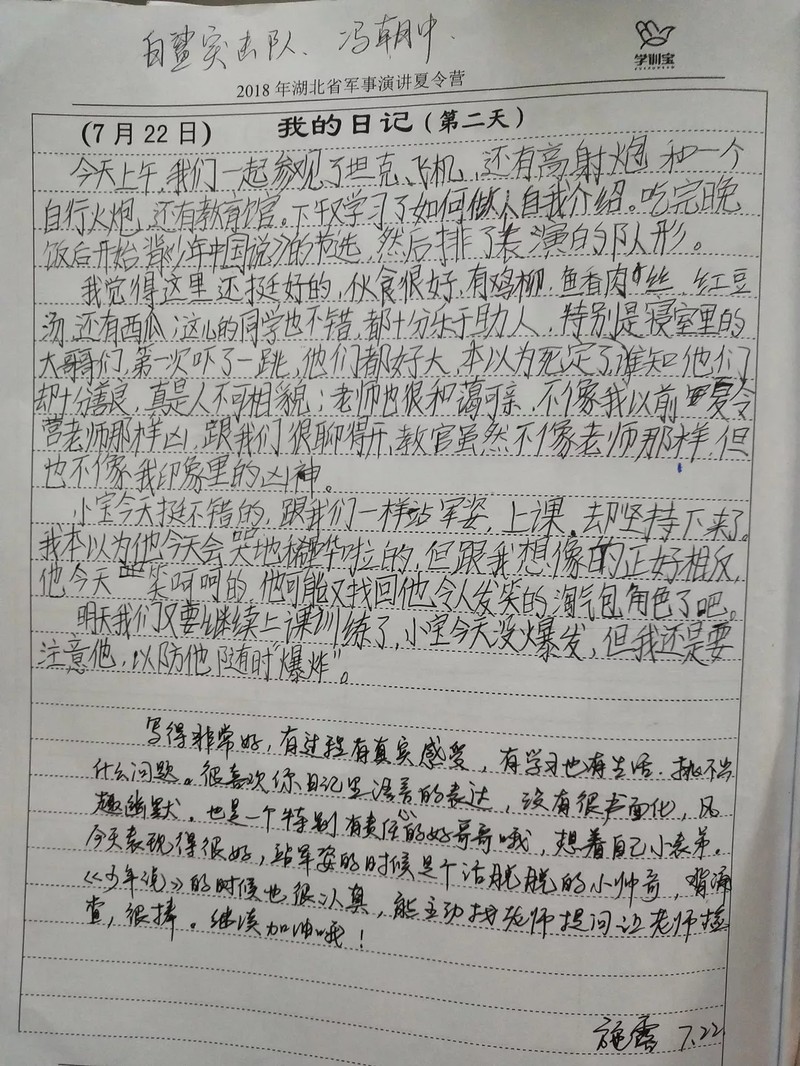 白鲨突击队、冯朝中.
学训宝
2018年湖北省军事演讲夏令营
(7月22日) 我的日记(第二天)
今天上午,我们一起参观了坦克、飞机,还有高射炮和一个
自行火炮,还有教育馆。下午又学习了如何做人自我介绍。吃完晚
饭后开始背《少年中国说》的节选,然后排了表演的队形。
我觉得这里还挺好的,伙食很好,有鸡柳,鱼香肉丝,红豆
汤,还有西瓜;这儿的同学也不错,都十分乐于助人,特别是寝室里的
大哥哥们,第一次吓了一跳,他们都好大,本以为死定了,谁知他们
却十分善良,真是人不可相貌;老师也很和蔼可亲,不像我以前夏令
营老师那样凶,跟我们很聊得开,教官虽然不像老师那样,但
也不像我印象里的凶神。
小宝今天挺不错的,跟我们一样站军姿,上课,却坚持下来了。
我本以为他今天会哭地稀里哗啦的,但跟我想像的正好相反,
他今天笑呵呵的,他可能又找回他令人发笑的淘气包角色了吧。
明天我们又要继续上课训练了,小宝今天没爆发,但我还是要
注意他,以防他随时"爆炸"。
写得非常好,有过程有真实感受,有学习也有生活.挑不出
什么问题。很喜欢你日记里语言的表达,没有很书面化,风
趣幽默.也是一个特别有责任心的好哥哥哦,想着自己小表弟。
今天表现得很好,站军姿的时候是个活脱脱的小帅哥,背诵
《少年说》的时候也很认真,能主动找老师提问让老师检
查,很棒。继续加油哦!
7.22